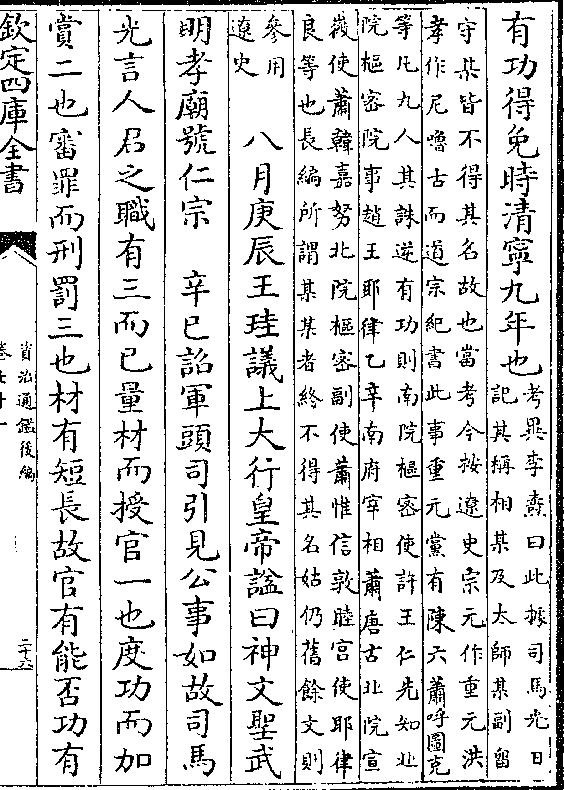 有功得免時清寧九年也考異李燾曰此據司馬光日
記其稱相某及太師某副留
守某皆不得其名故也當考今按遼史宗元作重元洪
孝作尼嚕古而道宗紀書此事重元黨有陳六蕭呼圖克
等凡九人其誅逆有功則南院樞密使許王仁先知北
院樞密院事趙王耶律乙辛南府宰相蕭唐古北院宣
徽使蕭韓嘉努北院樞密副使蕭惟信敦睦宮使耶律
良等也長編所謂某某者終不得其名姑仍舊餘文則
參用
遼史　八月庚辰王珪議上大行皇帝諡曰神文聖武
明孝廟號仁宗　辛巳詔軍頭司引見公事如故司馬
光言人君之職有三而已量材而授官一也度功而加
賞二也審罪而刑罰三也材有短長故官有能否功有
欽定四庫全書
資治通鑑後編
二十六